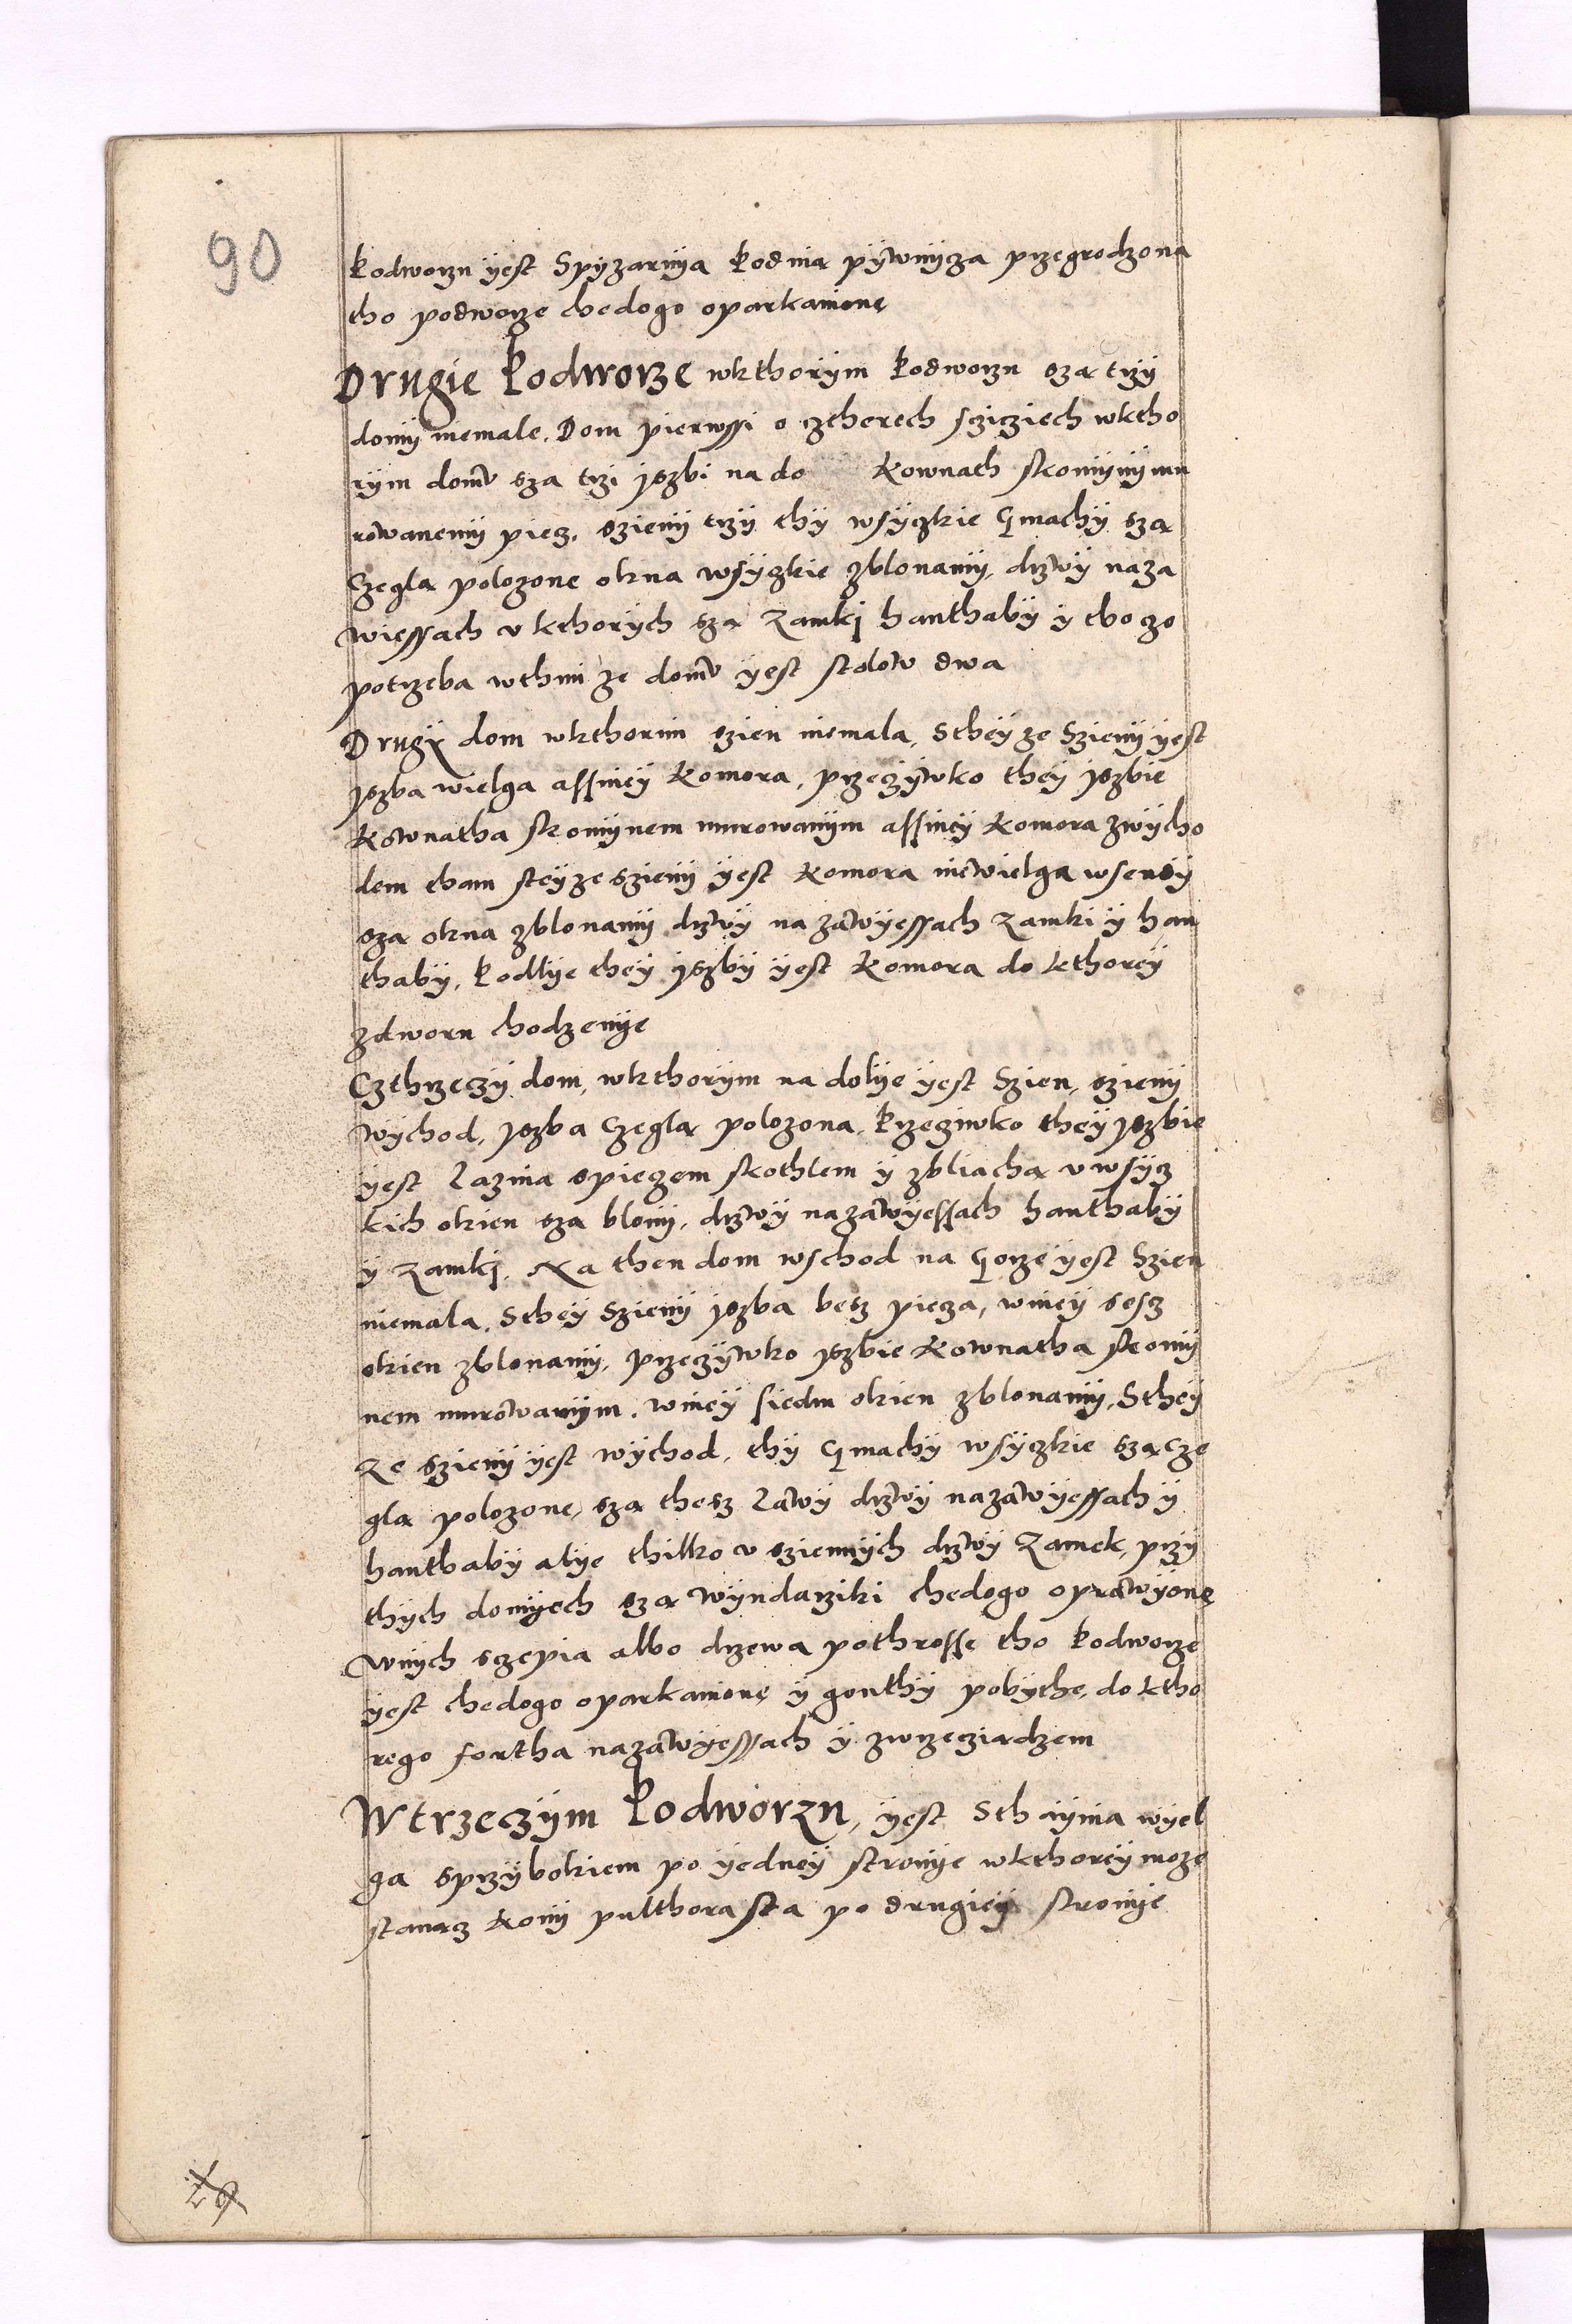 90
Podworzu yest Spyzarnya Podnia pywnycza przegrodzona
tho podworze chedogo oparkanione
Drugie Podworze wkthorym Podworzu sza trzy
domy niemale. Dom pierwssi o cztherech sczicziech wktho
rym domu sza trzi jszbi na do Kownath skomynymu
rowanemy piecz. szieny trzy thy wsyczkie Gmachy sza
Czegla polozone okna wsyczkie zblonamy, drzwy naza
wiessach v kthorych sza Zamkj hanthaby y tho czo
potrzeba wthmi ze domu yest stolow dwa
Drugy dom wkthorim szien niemala, Sthey ze Szieny yest
jszba wielga assniey Komora, przeczywko they jszbie
Kownatha skomynem murowanym assniey Komora zwycho
dem tham steyze szieny yest Komora niewielga wsendy
sza okna zblonamy drzwy na zawyessach Zamki y han
thaby, Podlye they jszby yest Komora do kthorey
zdworu chodzenye
Czthrzeczy dom, wkthorym na dolye yest Szien, szieny
wychod, jszba Czegla polozona, Przeciwko they jszbie
yest Laznia spieczem skothlem y zbliacha v wsycz
kich okien sza blony, drzwy nazawyessach hanthaby
y Zamkj. Na then dom wschod na Gorze yest Szien
niemala, Sthey Szieny jszba besz pieza, wniey sesz
okien zblonamy, przeczywko jszbie Kownatha skomy
nem murowanym. wniey siedm okien zblonamy, Sthey
Ze szieny yest wychod, thy Gmachy wsyczkie sza Cze
gla polozone, sza thesz Lawy drzwy nazawyessach y
hanthaby alye thilko v sziennych drzwy Zamek, przy
thych domyech sza wyndarziki chedogo oprawyone
wnych sczepia albo drzewa pothrosse tho Podworze
yest chedogo oparkanione y gonthy pobythe, do ktho
rego fortha nazawyessach y zwrzecziadzem
Wtrzeczym Podworzu, yest Sthaynia wyel
ga sprzybokiem po yedney stronye wkthorey moze
stanacz Kony pulthora sta po drugiey stronye